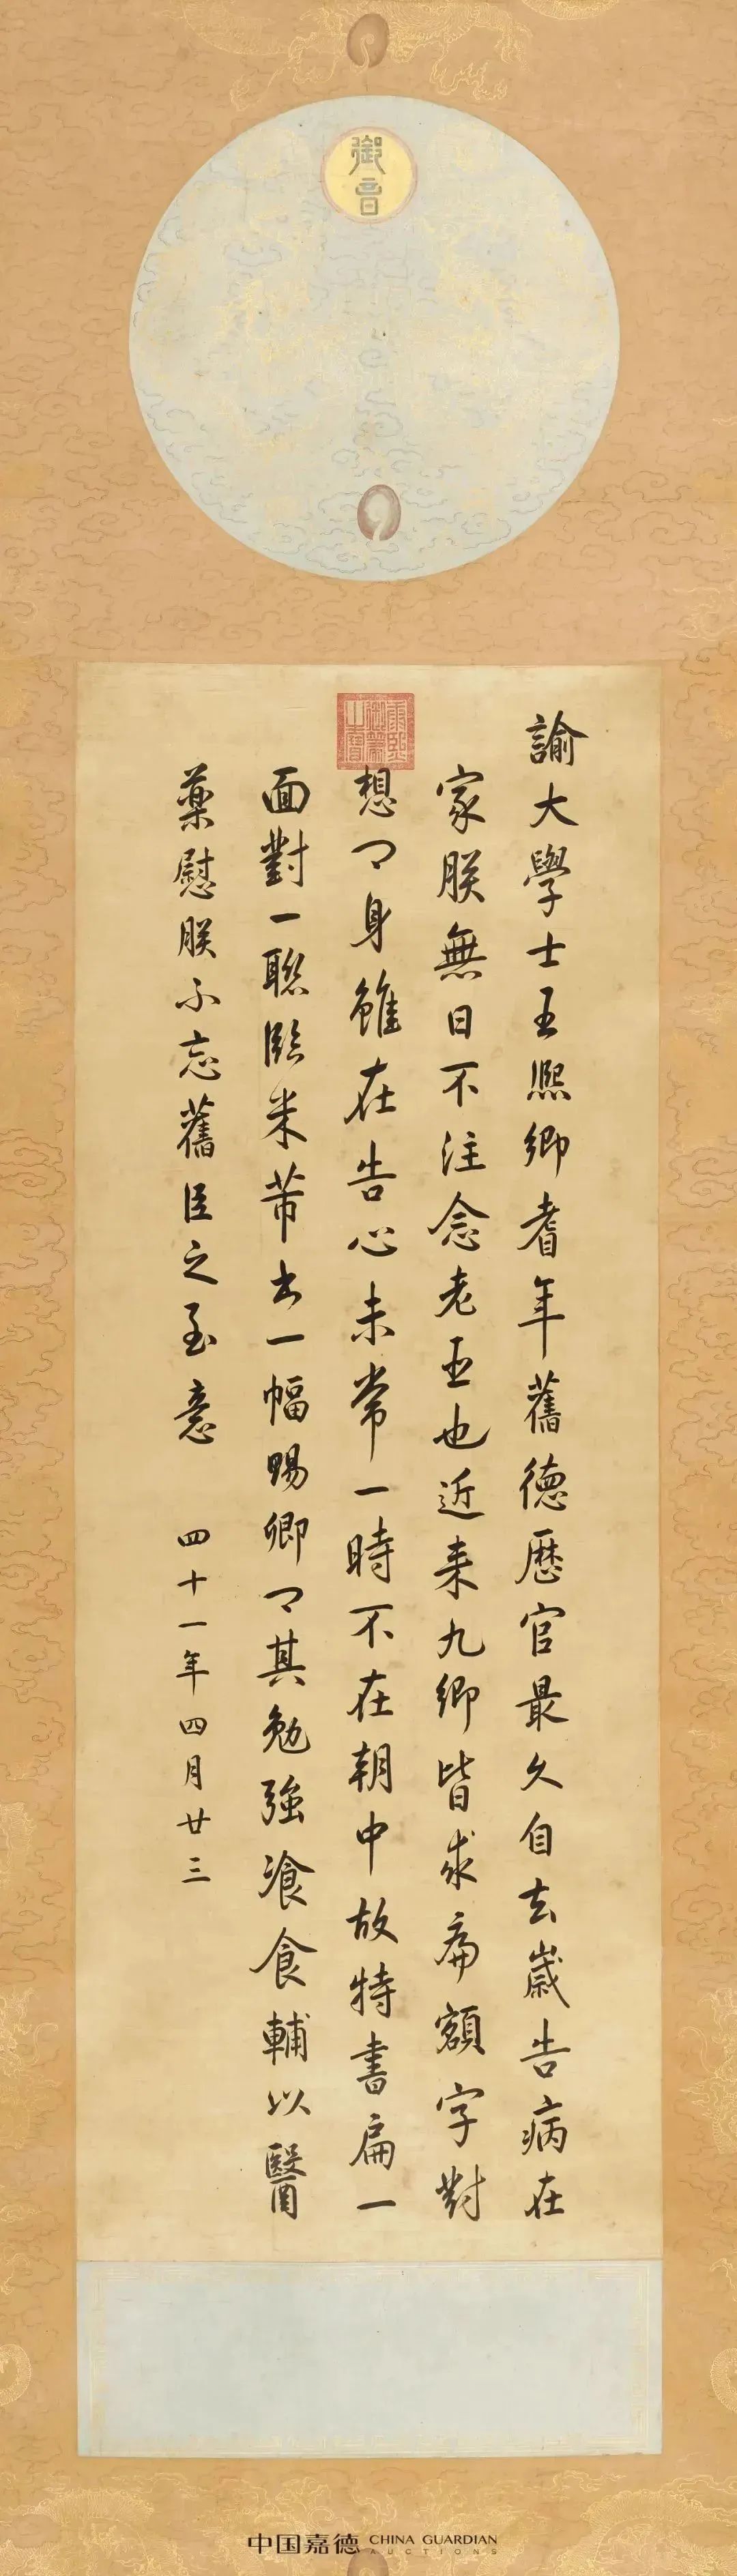 御音
康熙御筆之寶
諭大學士王熙卿耆年舊德歷官最久自去歲告病在
家朕無日不注念老臣也近来九卿皆求扁額字對
想卿身雖在告心未常一時不在朝中故特書扁一
面對一聯臨米芾書一幅賜卿卿其勉強飡食輔以醫
藥慰朕不忘舊臣之至意
四十一年四月廿三
中国嘉德 CHINA GUARDIAN
AUCTIONS